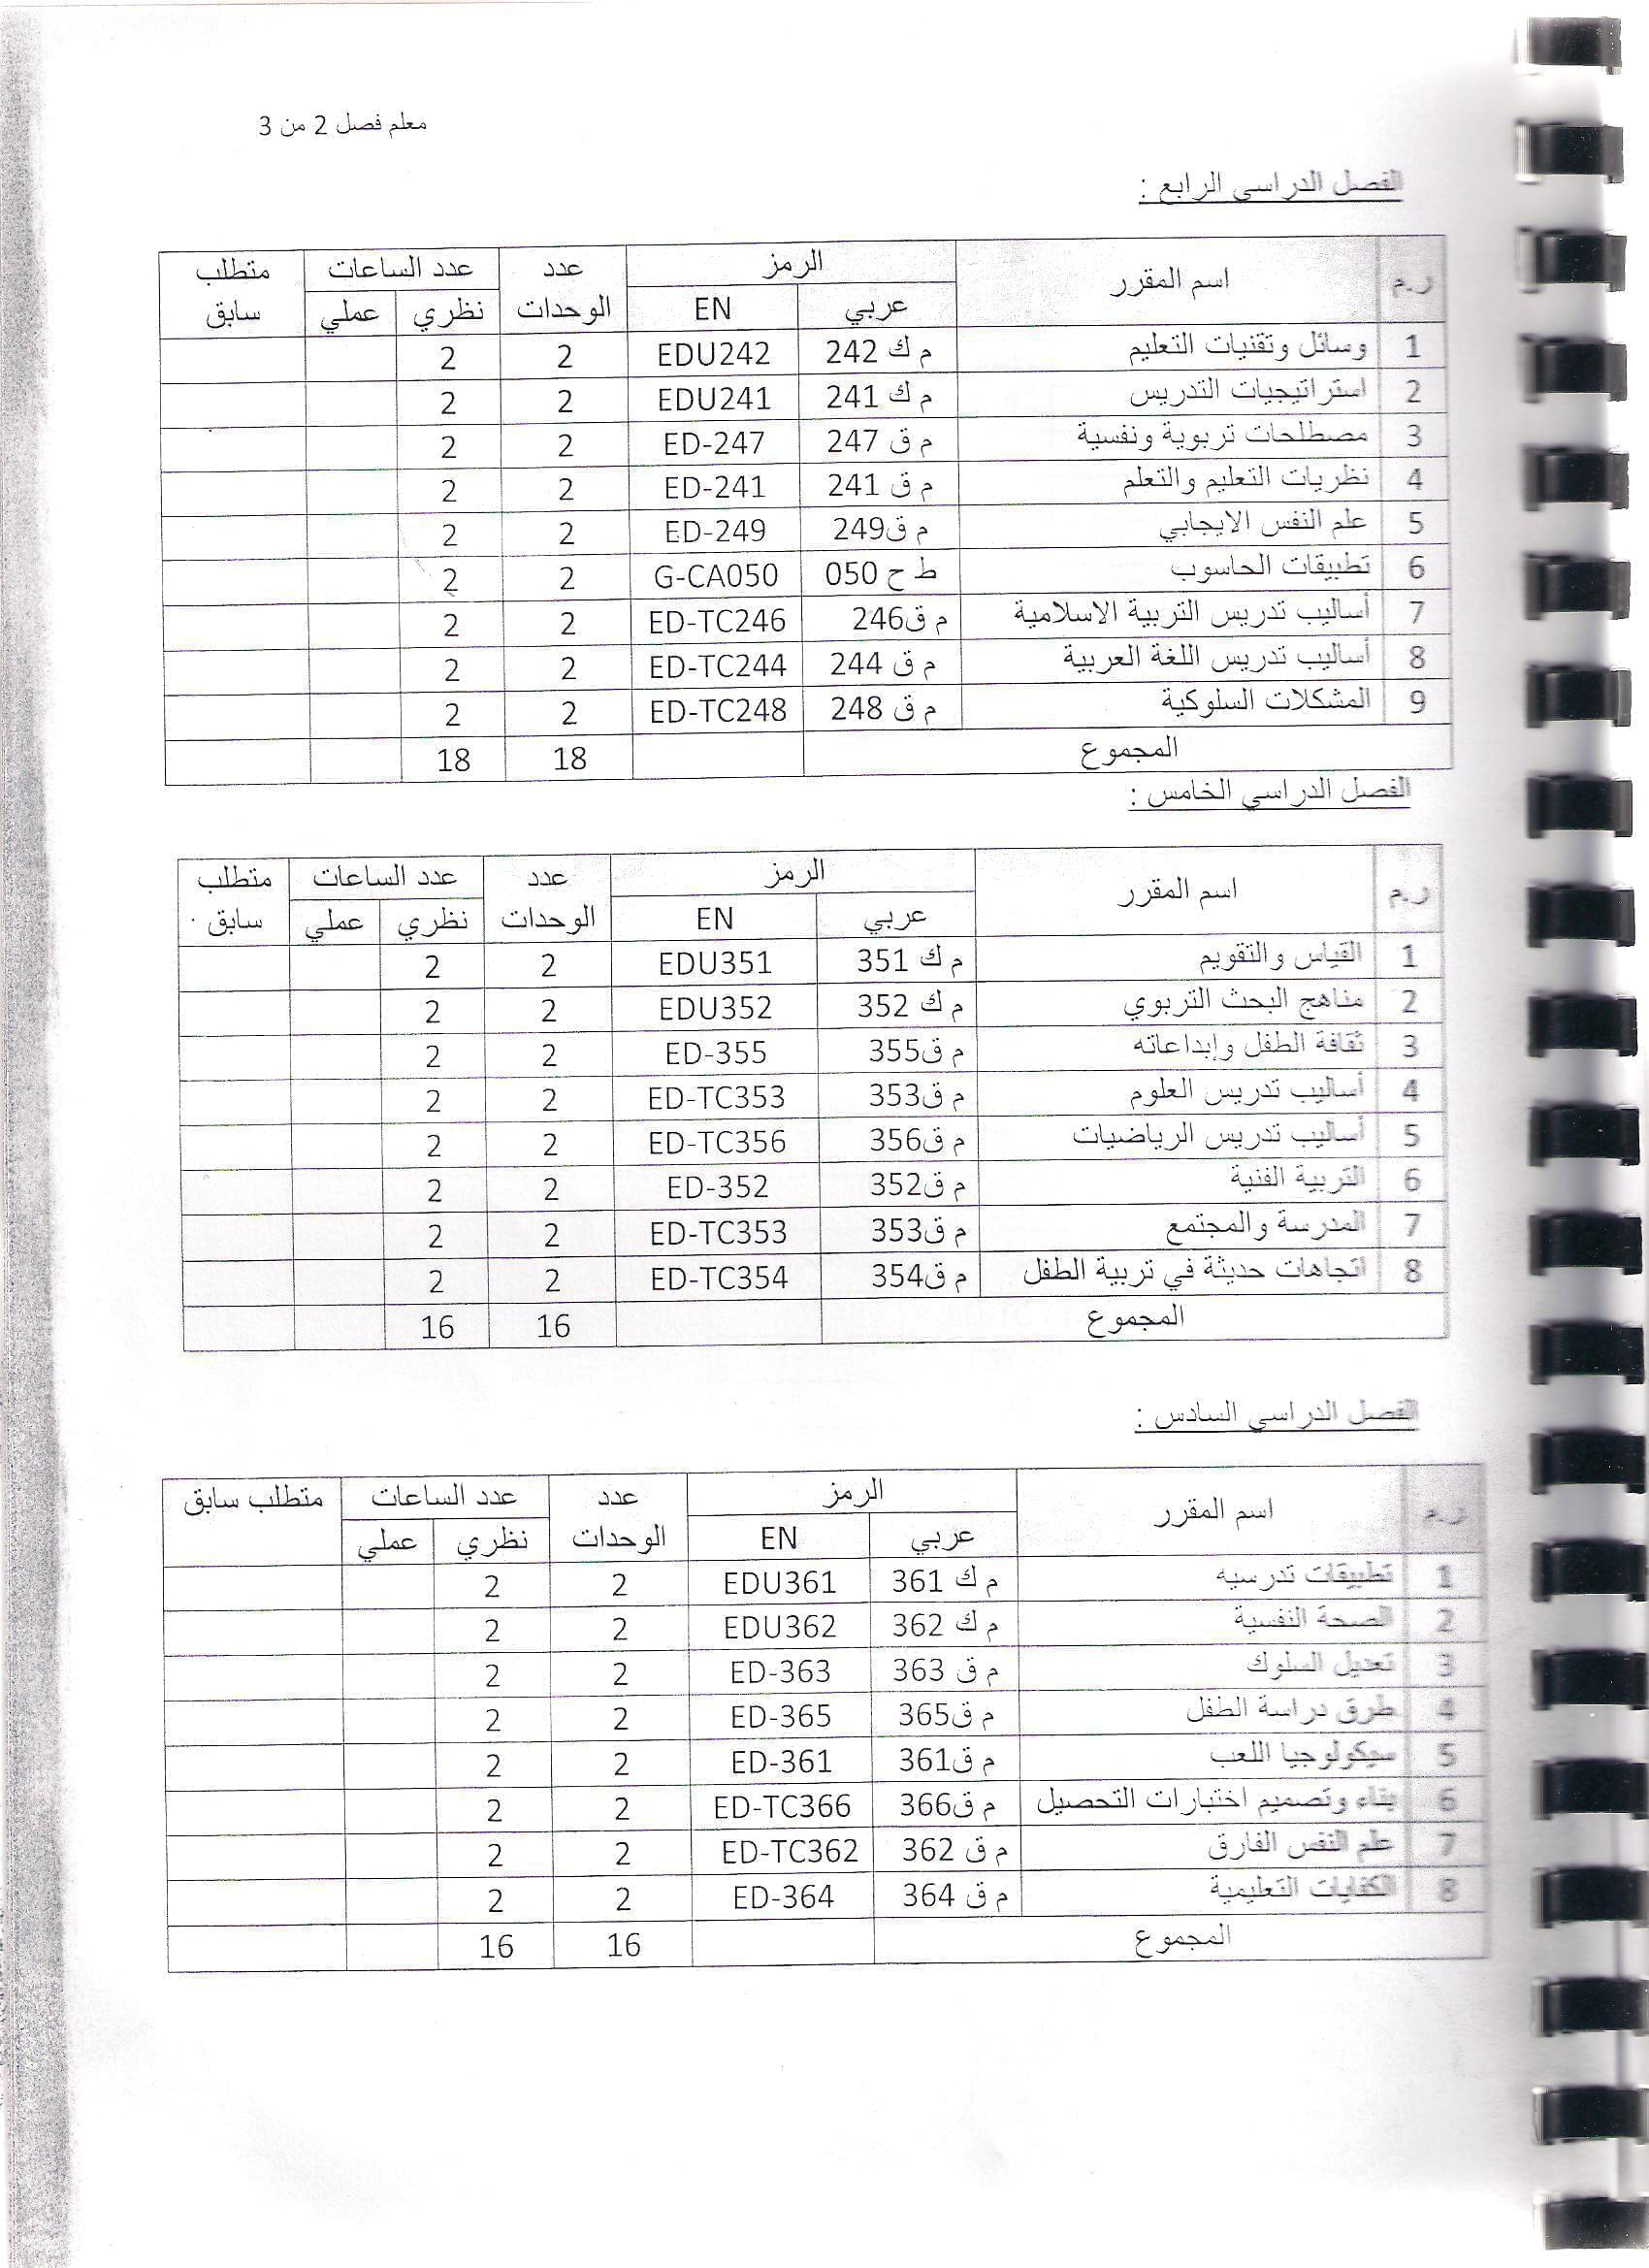 معلم فصل 2 من 3
الفصل الدراسي الرابع :
ر.م اسم المقرر الرمز عدد الوحدات عدد الساعات متطلب سابق
عربي EN نظري عملي
1 وسائل وتقنيات التعليم م ك 242 EDU242 2 2
2 استراتيجيات التدريس م ك 241 EDU241 2 2
3 مصطلحات تربوية ونفسية م ق 247 ED-247 2 2
4 نظريات التعليم والتعلم م ق 241 ED-241 2 2
5 علم النفس الايجابي م ق249 ED-249 2 2
6 تطبيقات الحاسوب ط ح 050 G-CA050 2 2
7 أساليب تدريس التربية الاسلامية م ق246 ED-TC246 2 2
8 أساليب تدريس اللغة العربية م ق 244 ED-TC244 2 2
9 المشكلات السلوكية م ق 248 ED-TC248 2 2
المجموع 18 18
الفصل الدراسي الخامس :
ر.م اسم المقرر الرمز عدد الوحدات عدد الساعات متطلب سابق
عربي EN نظري عملي
1 القياس والتقويم م ك 351 EDU351 2 2
2 مناهج البحث التربوي م ك 352 EDU352 2 2
3 ثقافة الطفل وإبداعاته م ق355 ED-355 2 2
4 أساليب تدريس العلوم م ق353 ED-TC353 2 2
5 أساليب تدريس الرياضيات م ق356 ED-TC356 2 2
6 التربية الفنية م ق352 ED-352 2 2
7 المدرسة والمجتمع م ق353 ED-TC353 2 2
8 اتجاهات حديثة في تربية الطفل م ق354 ED-TC354 2 2
المجموع 16 16
الفصل الدراسي السادس :
ر.م اسم المقرر الرمز عدد الوحدات عدد الساعات متطلب سابق
عربي EN نظري عملي
1 تطبيقات تدرسيه م ك 361 EDU361 2 2
2 الصحة النفسية م ك 362 EDU362 2 2
3 تعديل السلوك م ق 363 ED-363 2 2
4 طرق دراسة الطفل م ق365 ED-365 2 2
5 سيكولوجيا اللعب م ق361 ED-361 2 2
6 بناء وتصميم اختبارات التحصيل م ق366 ED-TC366 2 2
7 علم النفس الفارق م ق 362 ED-TC362 2 2
8 الكفايات التعليمية م ق 364 ED-364 2 2
المجموع 16 16